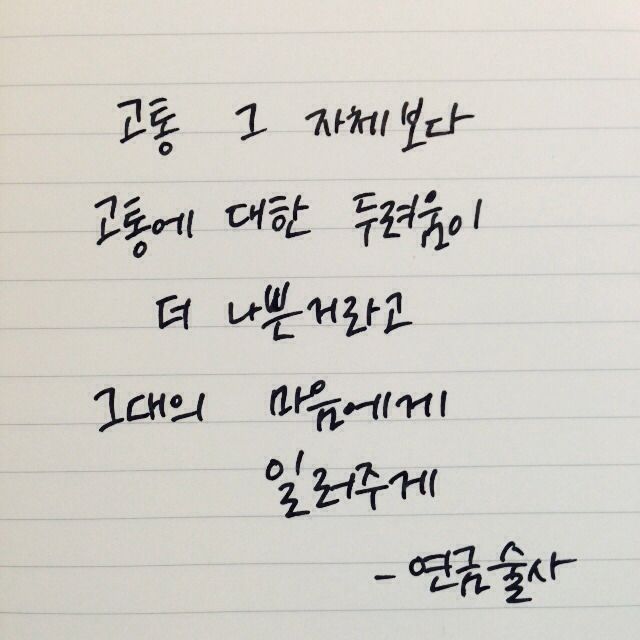 고통 그 자체보다
고통에 대한 두려움이
더 나쁜거라고
그대의 마음에게
일러주게
- 연금술사